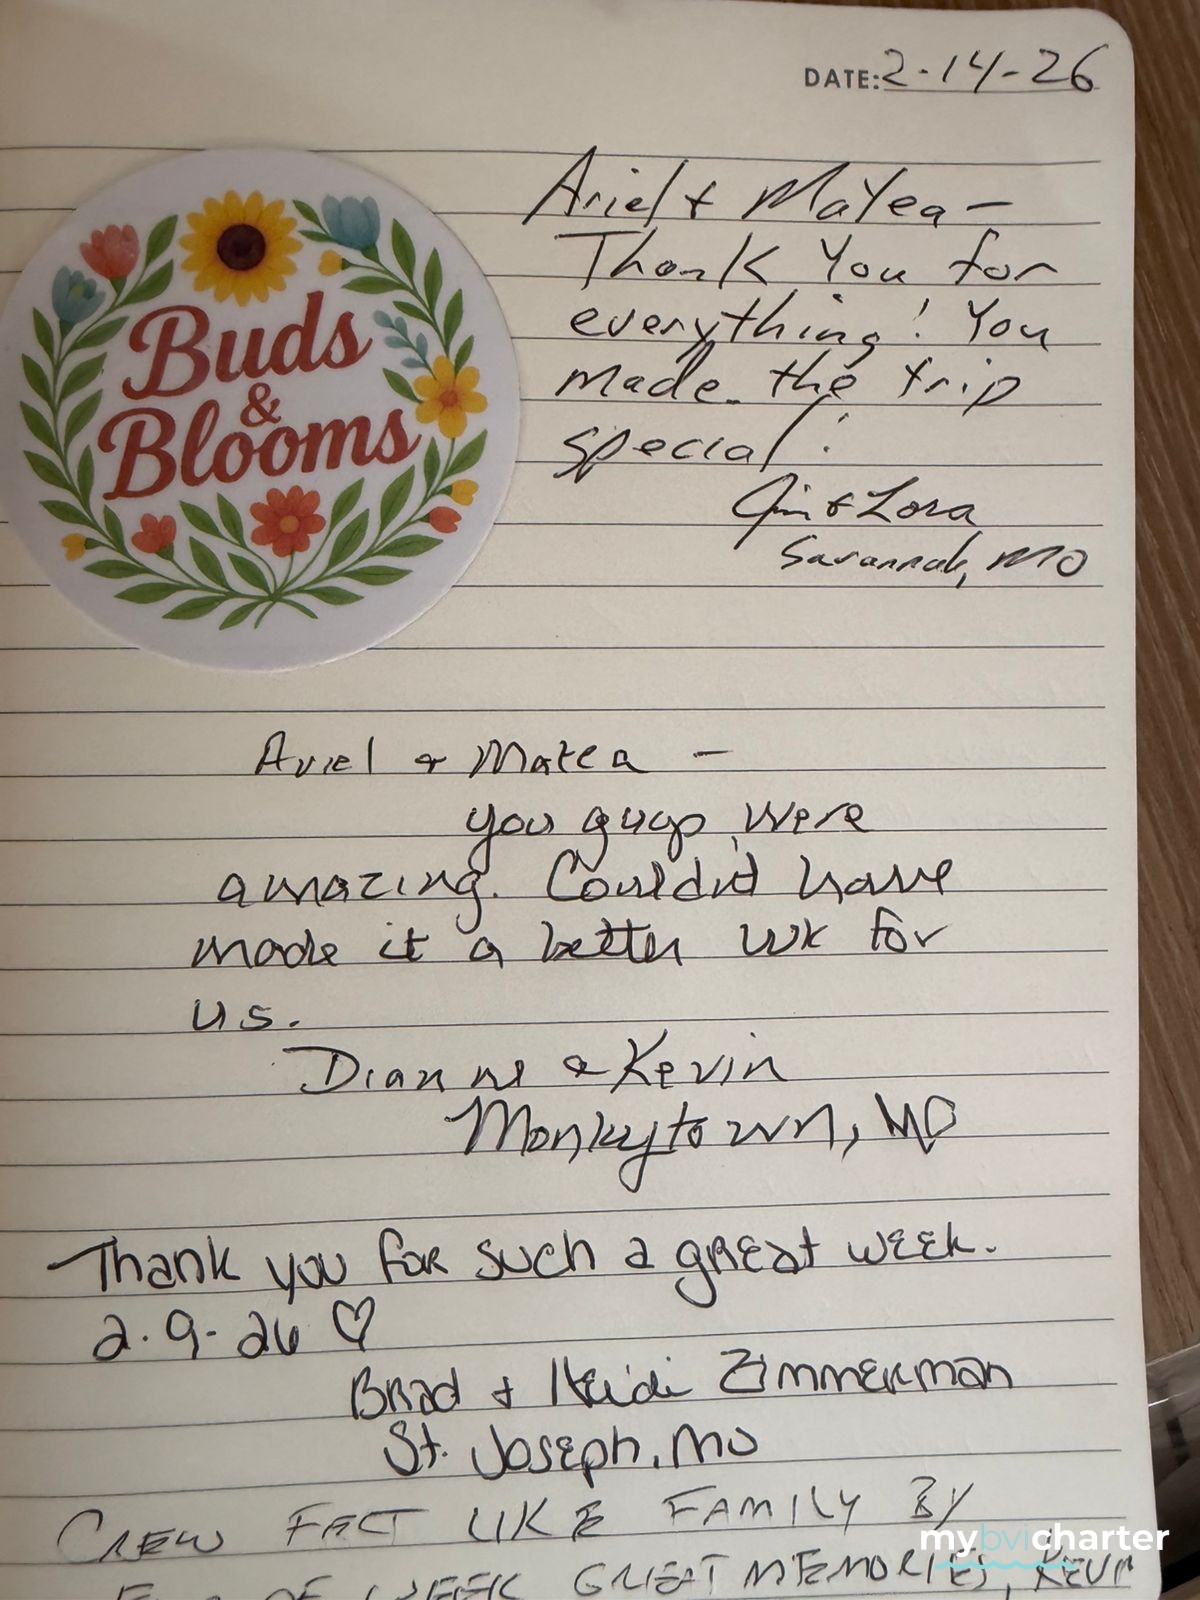 DATE: 2-14-26
Ariel + Mayea -
Thank You for
everything! You
made the trip
special!
Jim & Lora
Savannah, MO
Buds
&
Blooms
Ariel & Matea -
you guys were
amazing. Couldnt have
made it a better wk for
us.
Dianne & Kevin
Monkytown, MO
Thank you for such a great week.
2.9-26 ♡
Brad + Heidi Zimmerman
St. Joseph, MO
CREW FELT LIKE FAMILY BY
END OF WEEK GREAT MEMORIES,
mybvicharter